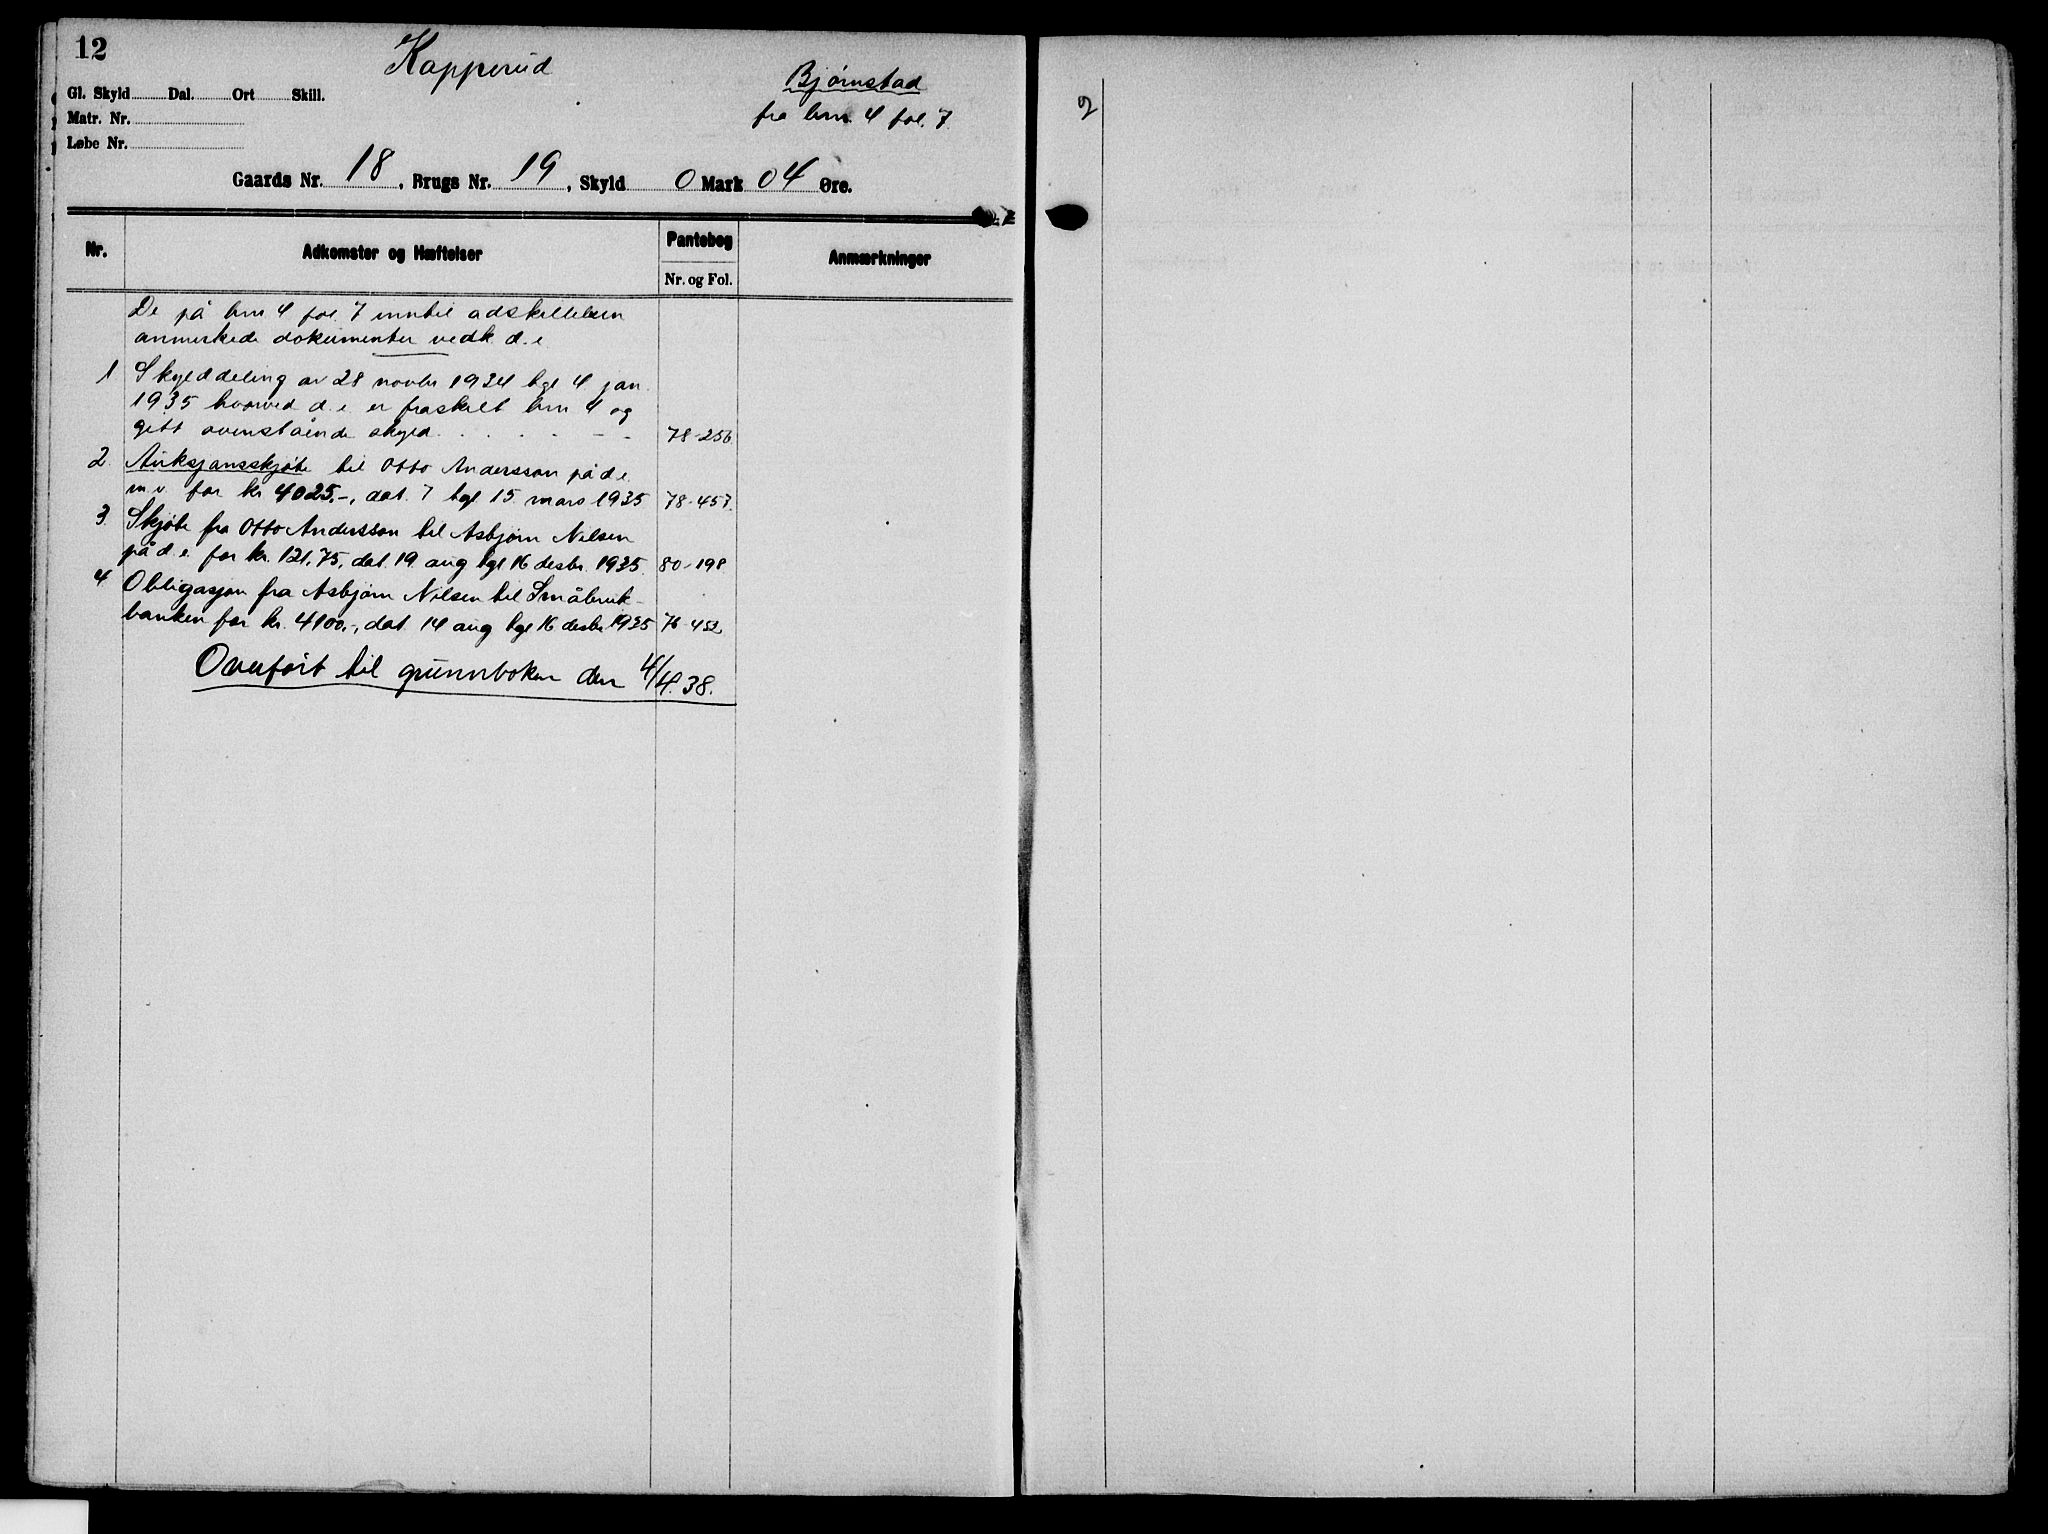 12
Kopperud
Bjørnstad
Gl. Skyld Dal. Ort Skill.
fra brn. 4 fol. 7.
Matr. Nr.
Løbe Nr.
Gaards Nr. 18, Brugs Nr. 19, Skyld 0 Mark 04 Øre.
Nr. Adkomster og Hæftelser Pantebog Anmærkninger
Nr. og Fol.
De på brn 4 fol. 7 inntil adskillelsen
anmerkede dokumenter vedk. d. e.
1 Skylddeling av 28 novbr 1934 tgl 4 jan.
1935 hvorved d. e. er fraskilt brn 4 og
gitt ovenstående skyld. . . . . - - 78-256.
2. Auksjonsskjøte til Otto Andersson på d e.
m v. for kr 4025.-, dat. 7 tgl. 15. mars 1935 78-457.
3 Skjøte fra Otto Andersson til Asbjørn Nilsen
på d. e. for kr. 121,75, dat. 19 aug tgl 16 desbr. 1935. 80-198
4 Obligasjon fra Asbjørn Nilsen til Småbruk-
banken for kr. 4100.-, dat 14 aug tgl 16 desbr. 1935 76-452
Overført til grunnboken den 4/4.38.
2